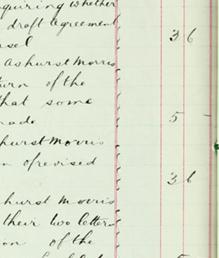 quiring whether
draft agreement 3 6
nsel
Ashurst Morris
turn of the
that some
made 5 -
hurst Morris
n of revised
3 6
hurst Morris
their two letters
on of the
5